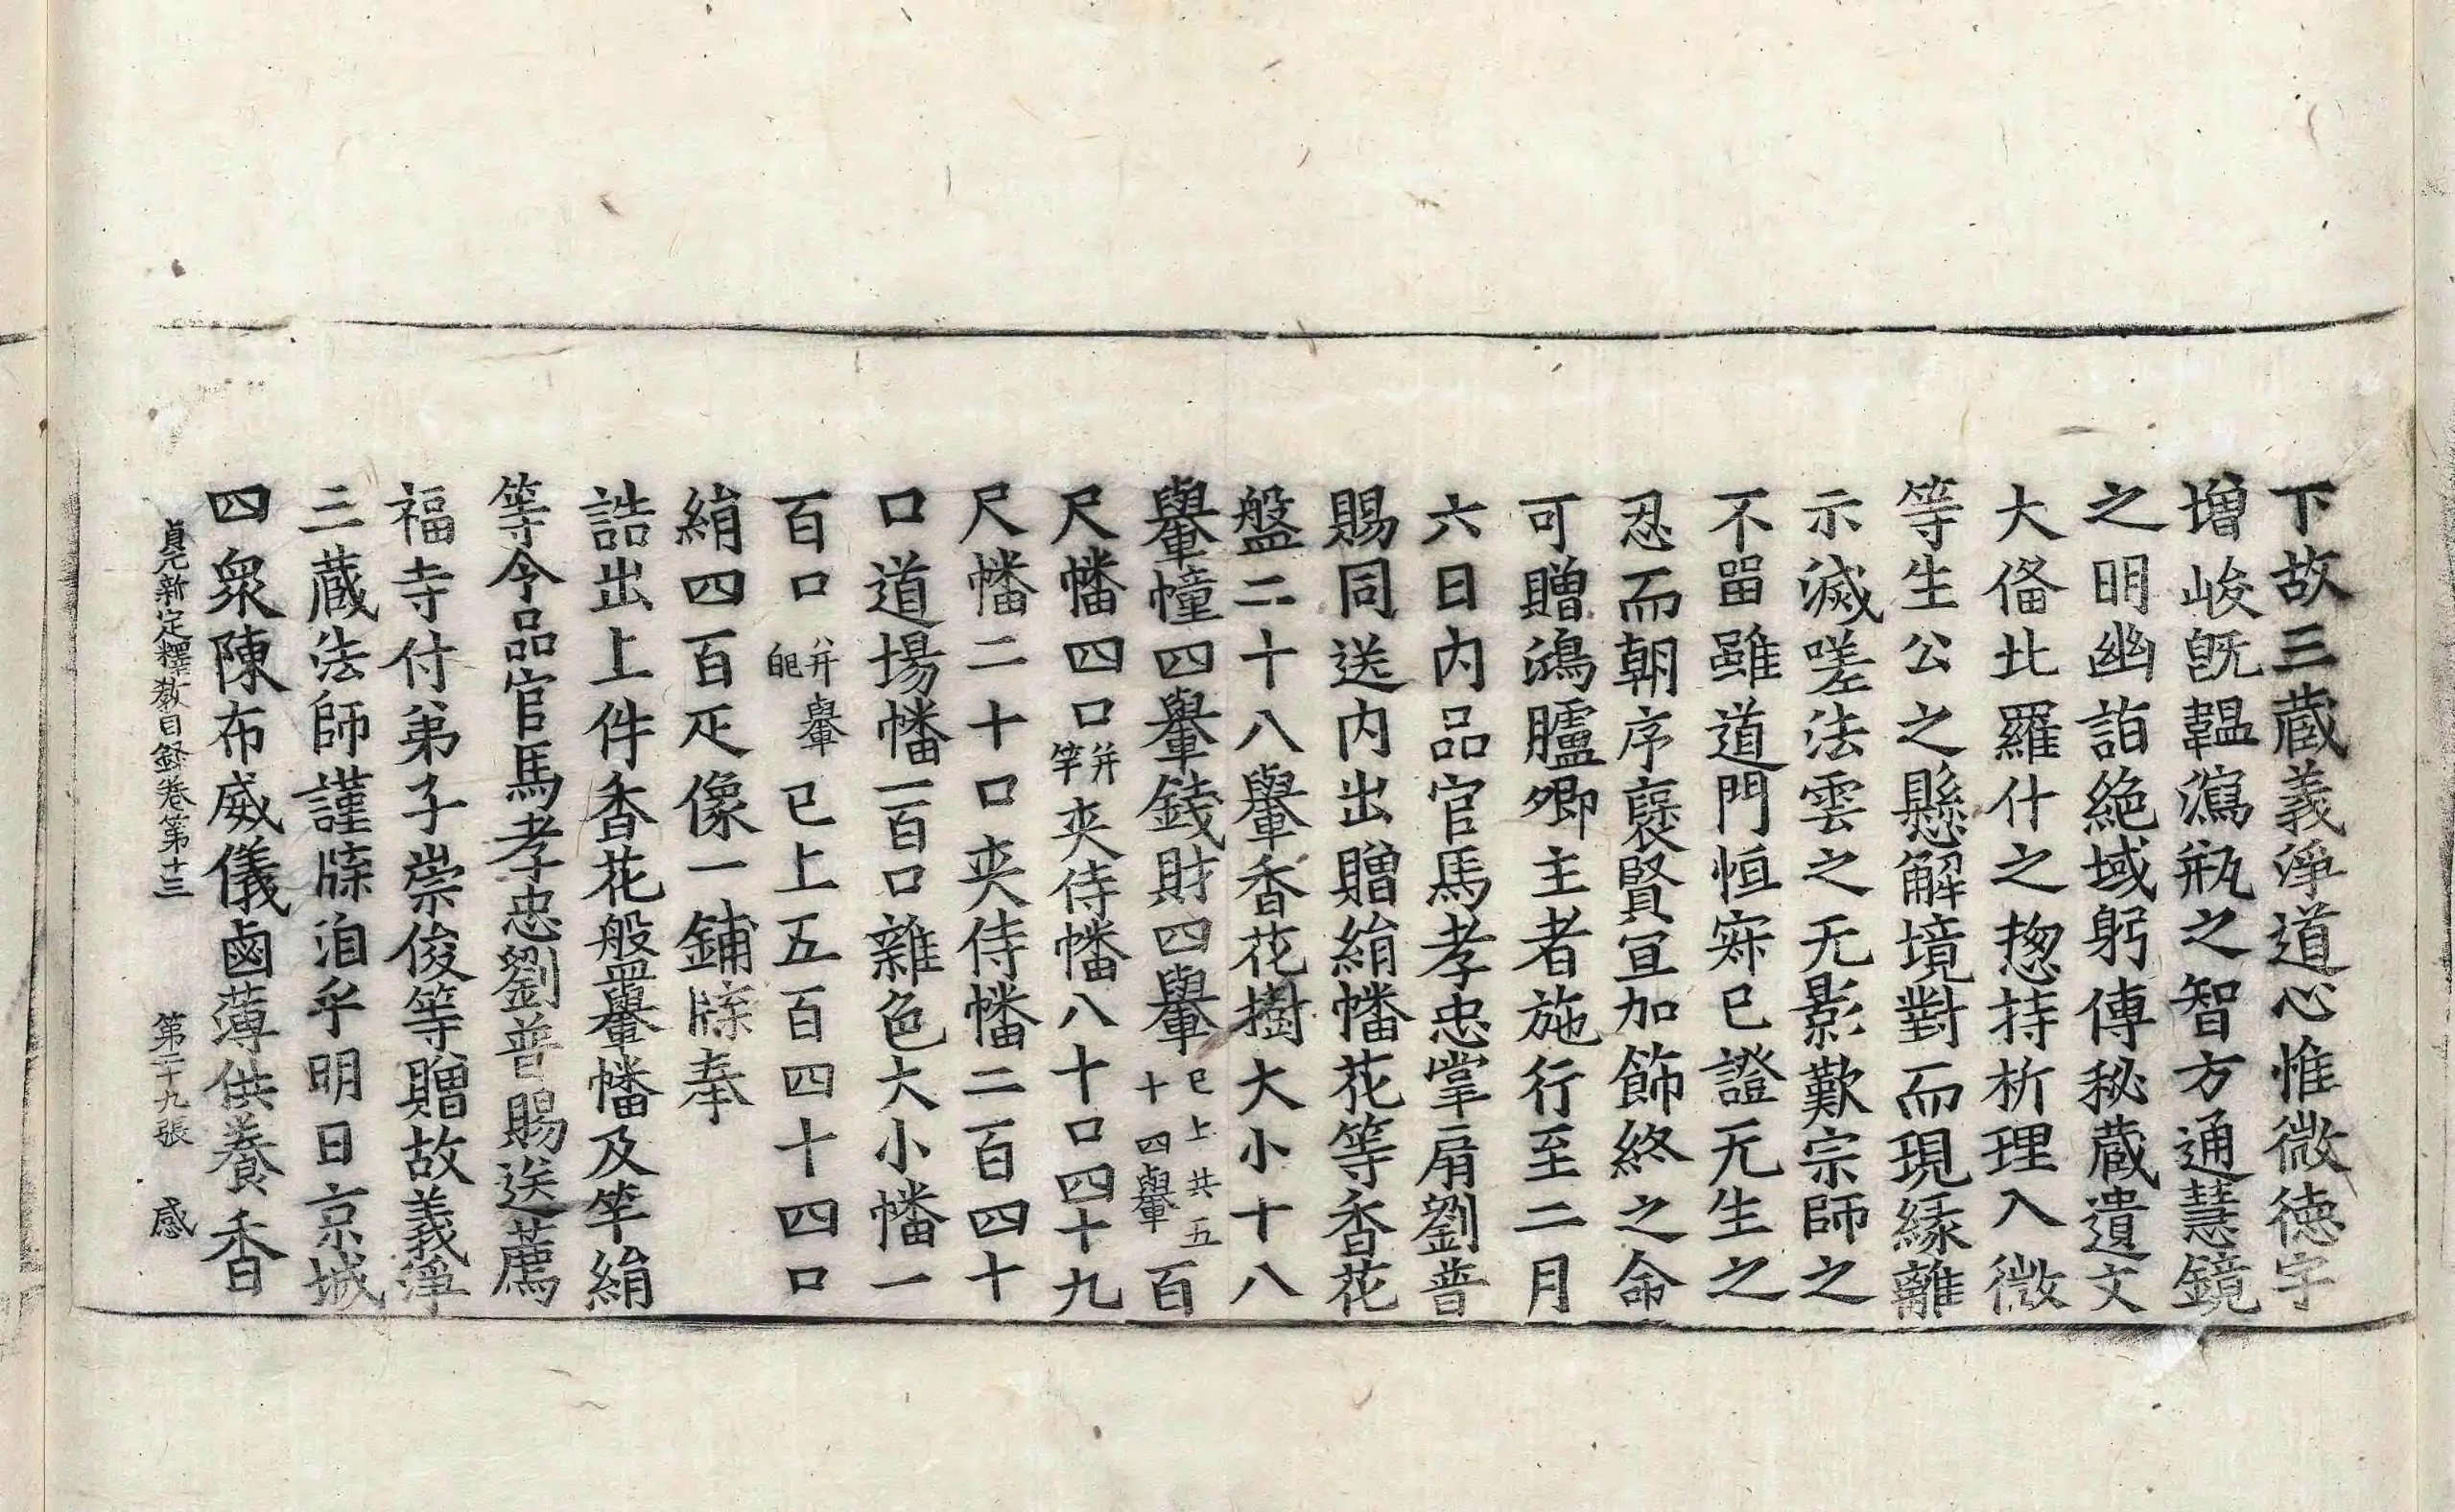 下故三蔵義淨道心惟微德宇
増峻旣韞瀉瓶之智方通慧鏡
之明幽詣絶域躬傳秘蔵遺文
大俻比羅什之揔持析理入微
等生公之懸解境對而現縁離
示滅嗟法雲之无影歎宗師之
不畱雖道門恒寂已證无生之
忍而朝序襃賢宜加飾終之命
可贈鴻臚卿主者施行至二月
六日内品官馬孝忠掌扇劉普
賜同送内出贈絹幡花等香花
盤二十八轝香花樹大小十八
轝幢四轝錢財四轝已上共五十四轝百
尺幡四口并竿夾侍幡八十口四十九
尺幡二十口夾侍幡二百四十
口道場幡一百口雜色大小幡一
百口并轝𦨖已上五百四十四口
絹四百疋像一鋪牒奉
誥出上件香花盤轝幡及竿絹
等令品官馬孝忠劉普賜送薦
福寺付弟子崇俊等贈故義淨
三蔵法師謹牒洎乎明日京城
四衆陳布威儀鹵薄供養香
貞元新定釋教目録卷第十三 第二十九張 感